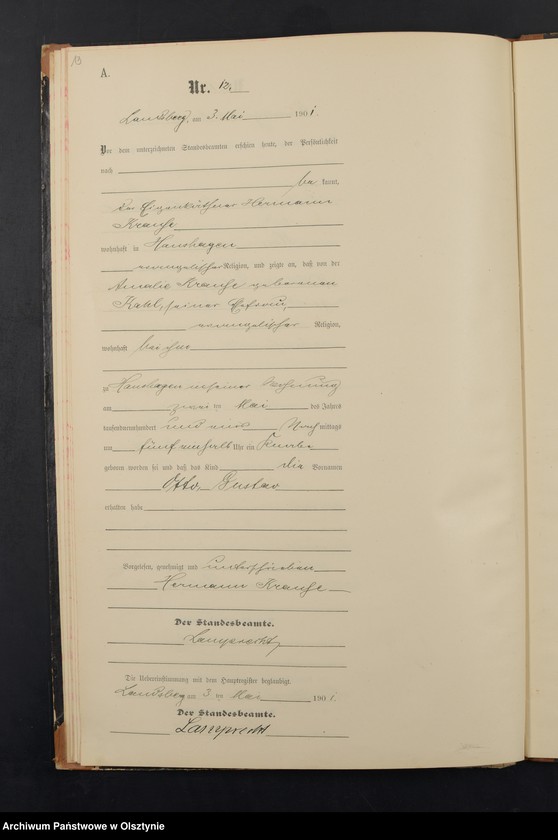 13
A.
Nr. 12.
Landsberg, am 3. Mai 1901.
Vor dem unterzeichneten Standesbeamten erschien heute, der Persönlichkeit
nach
be kannt,
der Eigenkäthner Hermann
Krause
wohnhaft in Hanshagen
evangelischer Religion, und zeigte an, daß von der
Amalie Krause geborenen
Kahl, seiner Ehefrau,
evangelischer Religion,
wohnhaft bei ihm
zu Hanshagen in seiner Wohnung
am zwei ten Mai des Jahres
tausendneunhundert und eins Nachmittags
um fünf einhalb Uhr ein Knabe
geboren worden sei und daß das Kind die Vornamen
Otto Gustav
erhalten habe
Vorgelesen, genehmigt und unterschrieben
Hermann Krause
Der Standesbeamte.
Lamprecht
Die Uebereinstimmung mit dem Hauptregister beglaubigt.
Landsberg am 3. ten Mai 1901.
Der Standesbeamte.
Lamprecht
Archiwum Państwowe w Olsztynie